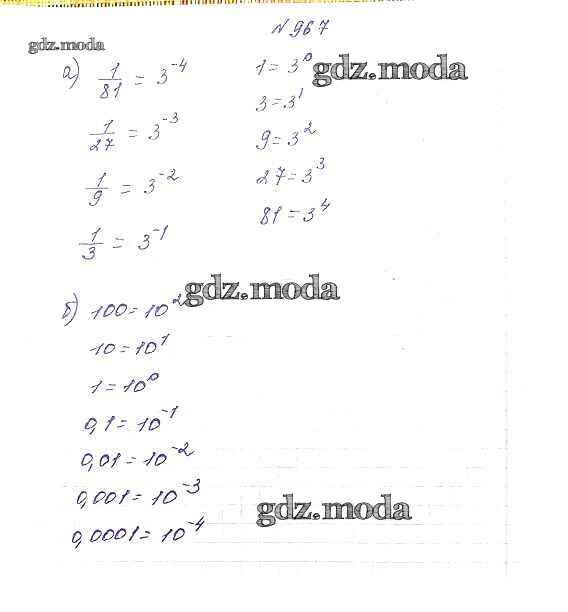 N 967
gdz.moda
а) 1/81 = 3^-4
1/27 = 3^-3
1/9 = 3^-2
1/3 = 3^-1
1 = 3^0
gdz.moda
3 = 3^1
9 = 3^2
27 = 3^3
81 = 3^4
gdz.moda
б) 100 = 10^2
10 = 10^1
1 = 10^0
0,1 = 10^-1
0,01 = 10^-2
0,001 = 10^-3
gdz.moda
0,0001 = 10^-4